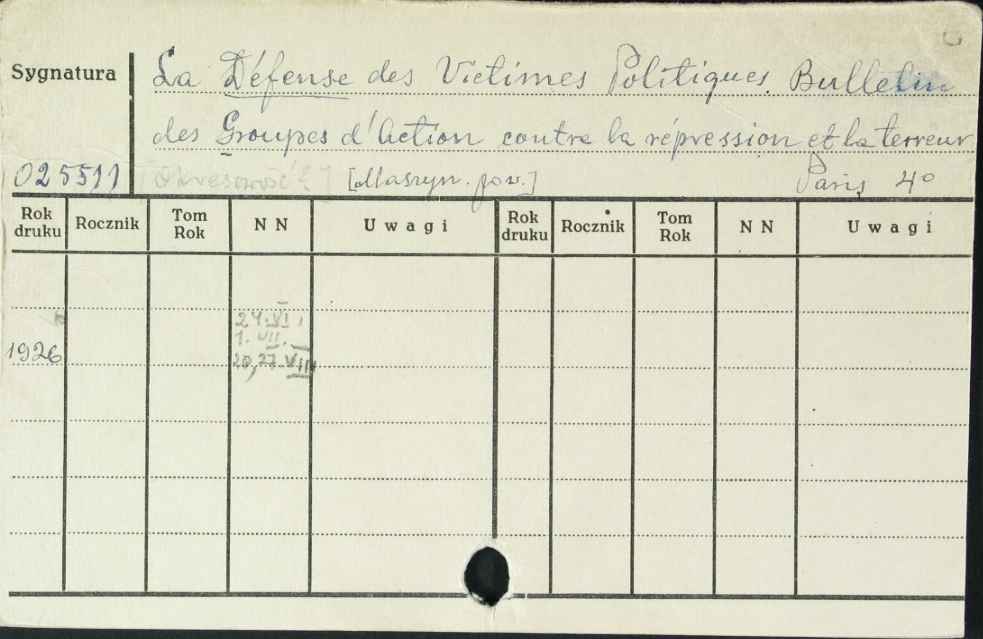 Sygnatura
La Défense des Victimes Politiques. Bulletin
des Groupes d'Action contre la répression et la terreur
025511 [Okresowość?] [Maszyn. pow.] Paris 4°
Rok druku Rocznik Tom Rok NN Uwagi Rok druku Rocznik Tom Rok NN Uwagi
24.VI,
1.VII.
1926 20,27.VIII